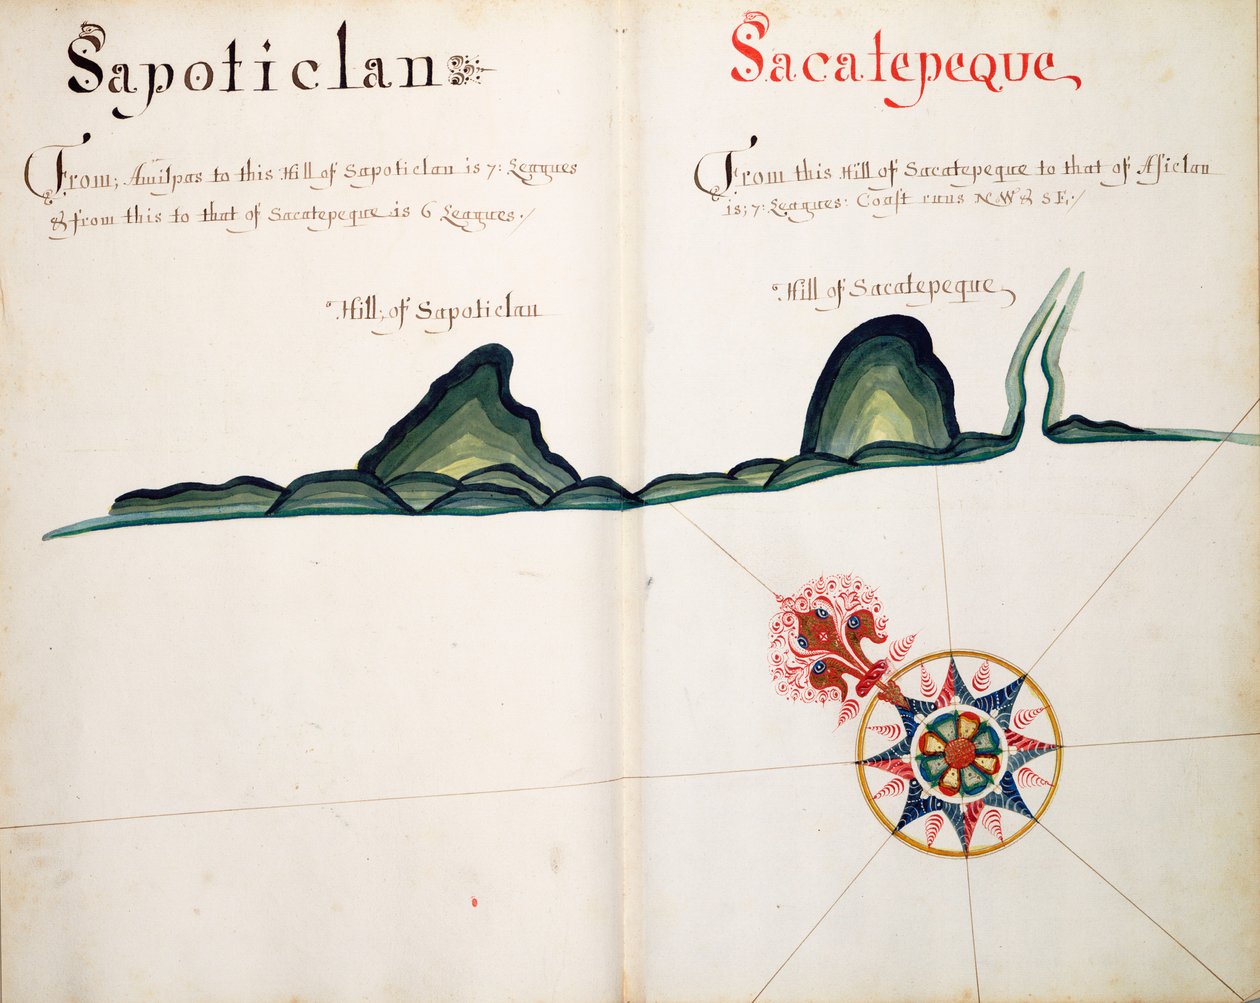 Sapoticlan
From; Amilpas to this Hill of Sapoticlan is 7: Leagues
& from this to that of Sacatepeque is 6 Leagues./
Hill; of Sapoticlan
Sacatepeque
From this Hill of Sacatepeque to that of Asiclan
is; 7; Leagues: Coast runs NW & SE;/
Hill of Sacatepeque